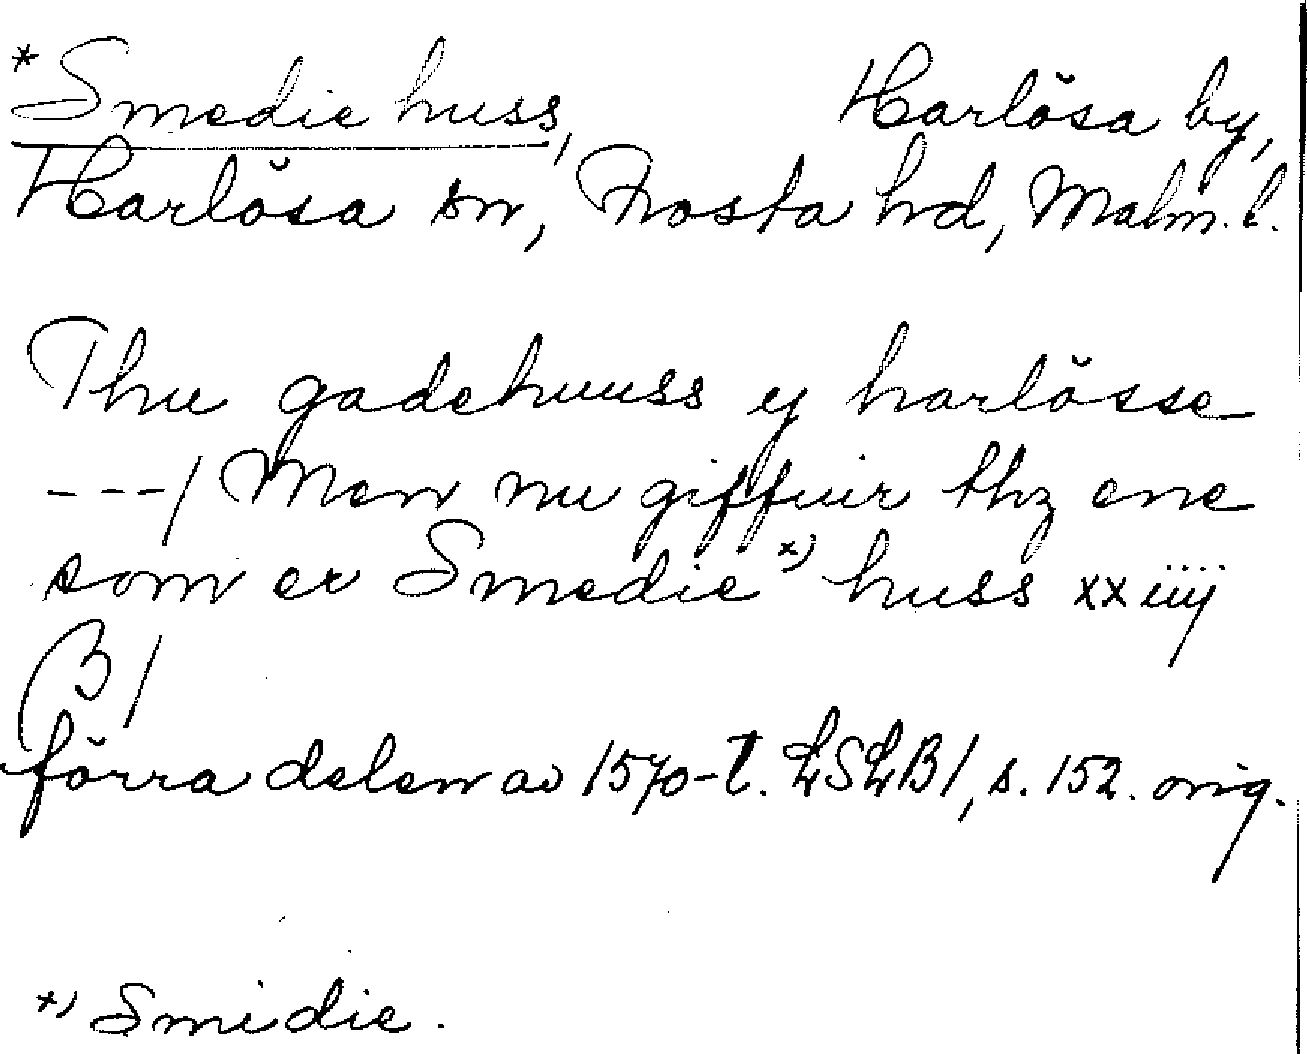 *Smedie huss, Harlösa by,
Harlösa sn, Frosta hd, Malm. l.
Thu gadehuuss y harlösse
---/ Men nu giffuir thz ene
som er Smedie x) huss xxiiij
β /
förra delen av 1570-t. LSLB1, s. 152. orig.
x) Smidie.